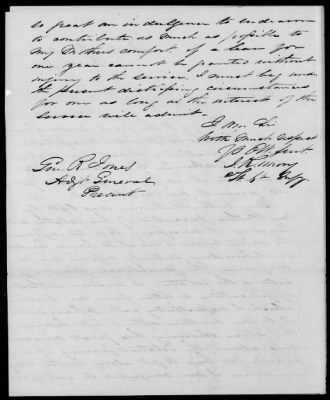 so great an indulgence to endeavor
to contribute as much as possible to
my Mothers comfort if a leave for
one year cannot be granted without
injury to the service. I must beg under
the present distressing circumstances
for one as long as the interest of the
service will admit.
I am Sir
With Much Respect
Yr Obt Servt
Gen R. Jones
Adjt General
Present